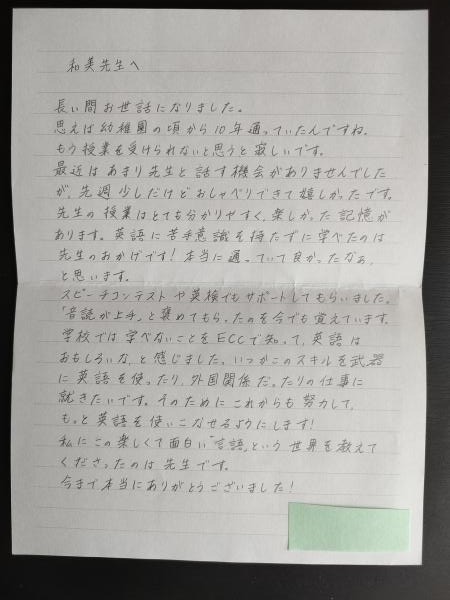 和美先生へ
長い間お世話になりました。
思えば幼稚園の頃から10年通っていたんですね。
もう授業を受けられないと思うと寂しいです。
最近はあまり先生と話す機会がありませんでした
が、先週少しだけどおしゃべりできて嬉しかったです。
先生の授業はとても分かりやすく、楽しかった記憶が
あります。英語に苦手意識を持たずに学べたのは
先生のおかげです!本当に通っていて良かったなぁ、
と思います。
スピーチコンテストや英検でもサポートしてもらいました。
「音読が上手」と褒めてもらったのを今でも覚えています。
学校では学べないことをECCで知って、英語は
おもしろいな、と感じました。いつかこのスキルを武器
に英語を使ったり、外国関係だったりの仕事に
就きたいです。そのためにこれからも努力して、
もっと英語を使いこなせるようにします!
私にこの楽しくて面白い「言語」という世界を教えて
くださったのは先生です。
今まで本当にありがとうございました!